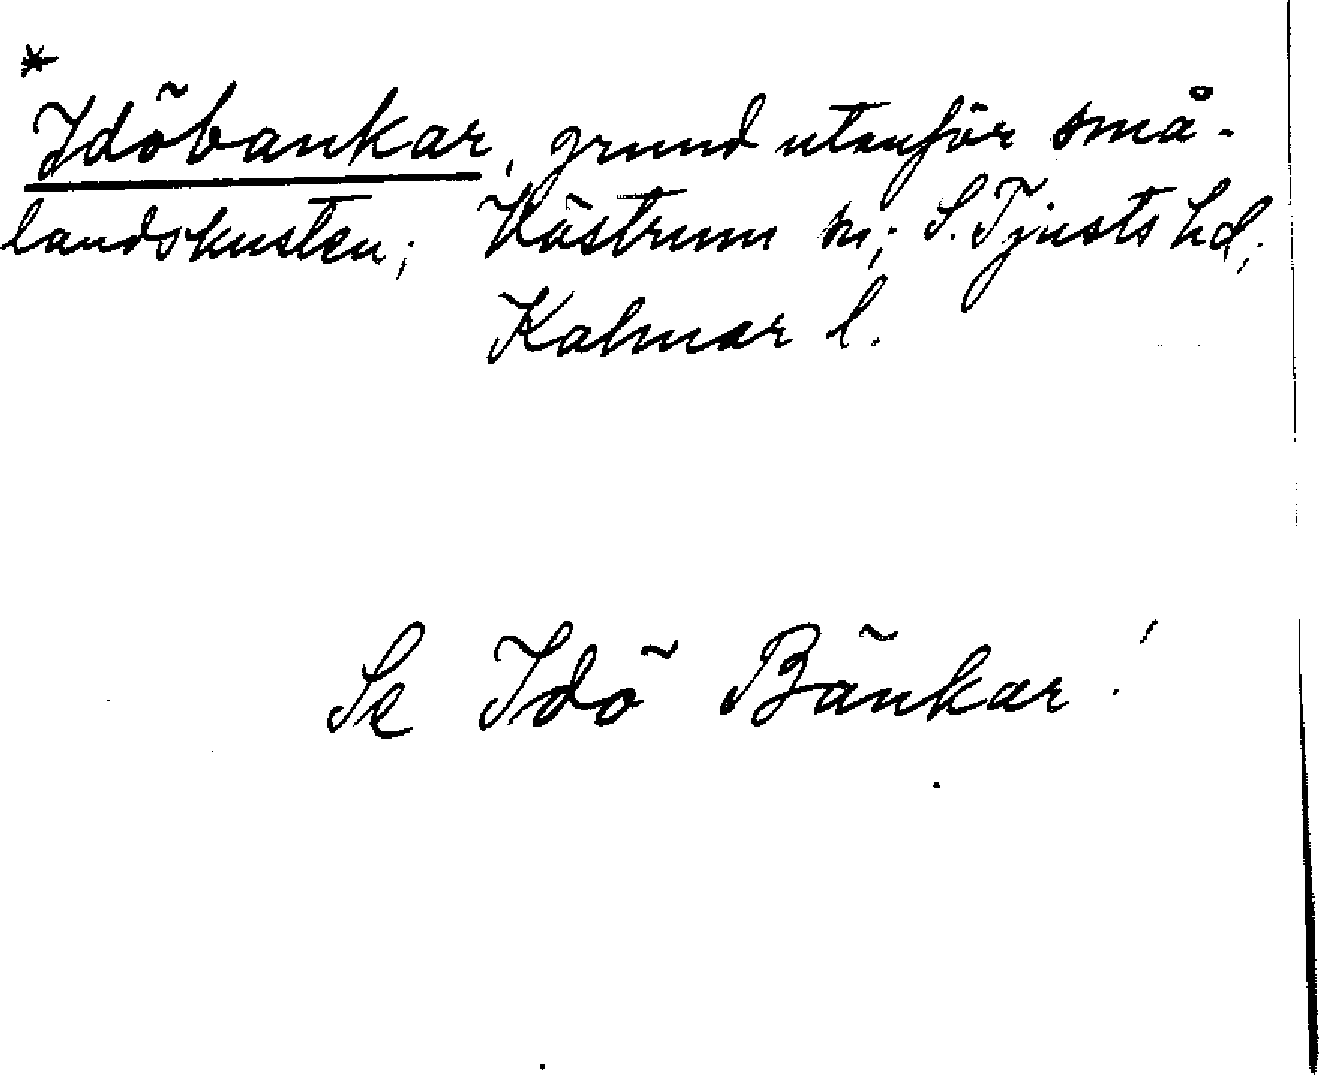 *
Idöbankar, grund utanför små-
landskusten; Västrum sn; S. Tjusts hd;
Kalmar l.
Se Idö Bänkar!